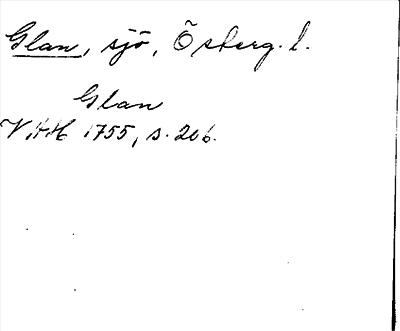 Glan, sjö, Österg. l.
Glan
VAH 1755, s. 206.